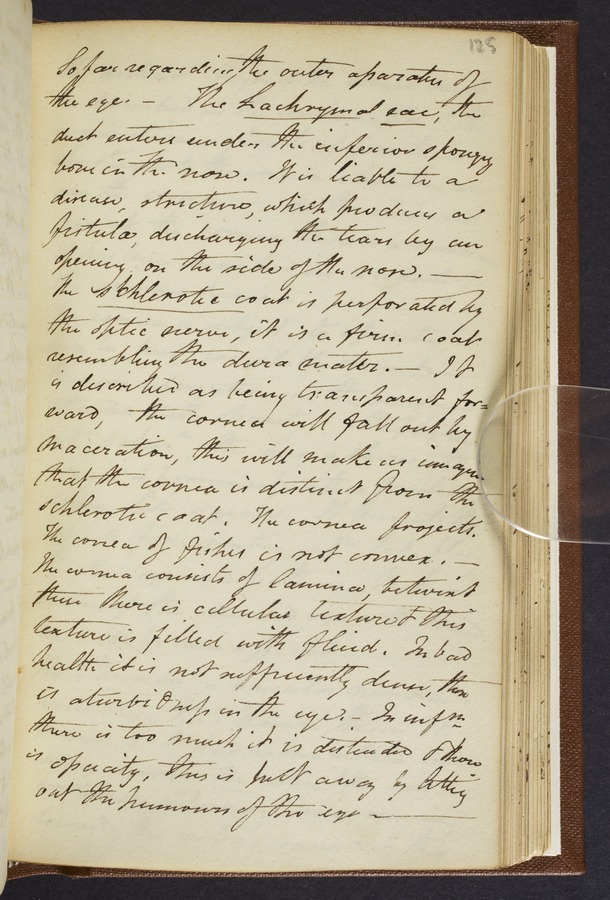 125
So far regarding the outer aparatus of
the eye. — The Lachrymal sac, the
duct enters under the inferior spongy
bone in the nose. It is liable to a
disease, stricture, which produces a
fistula, discharging the tears by an
opening on the side of the nose. —
The Schlerotic coat is perforated by
the optic nerve, it is a firm coat
resembling the dura mater. — It
is described as being transparent for=
ward, the cornea will fall out by
maceration, this will make us imagine
that the cornea is distinct from the
schlerotic coat. The cornea projects.
The cornea of fishes is not convex. —
The cornea consists of laminæ, betwixt
these there is cellular texture & this
texture is filled with fluid. In bad
health it is not sufficiently dense, there
is a turbidness in the eye. — In infm
there is too much it is distended & there
is opacity, this is    away by letting
out the humours of the eye —